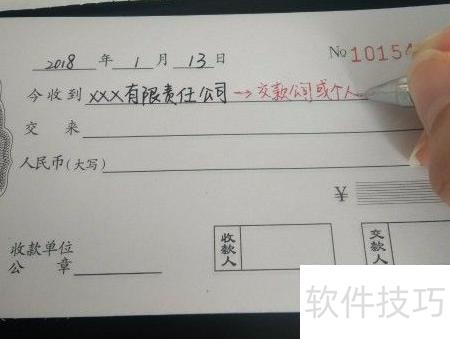 2018 年 1 月 13 日 No 10154
今收到 XXX有限责任公司 →交款公司或个人
交 来
人民币(大写)
¥
收款单位
公 章
收款人
交款人
软件技巧